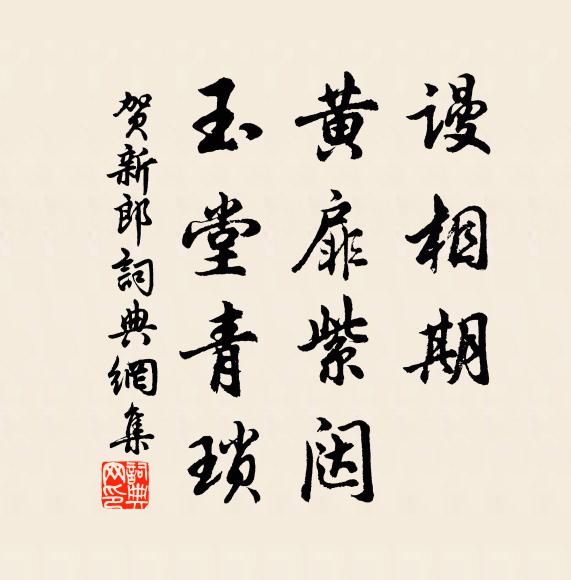 谩相期
黄扉紫闼
玉堂青琐
贺新郎詞典網集
詞典网印